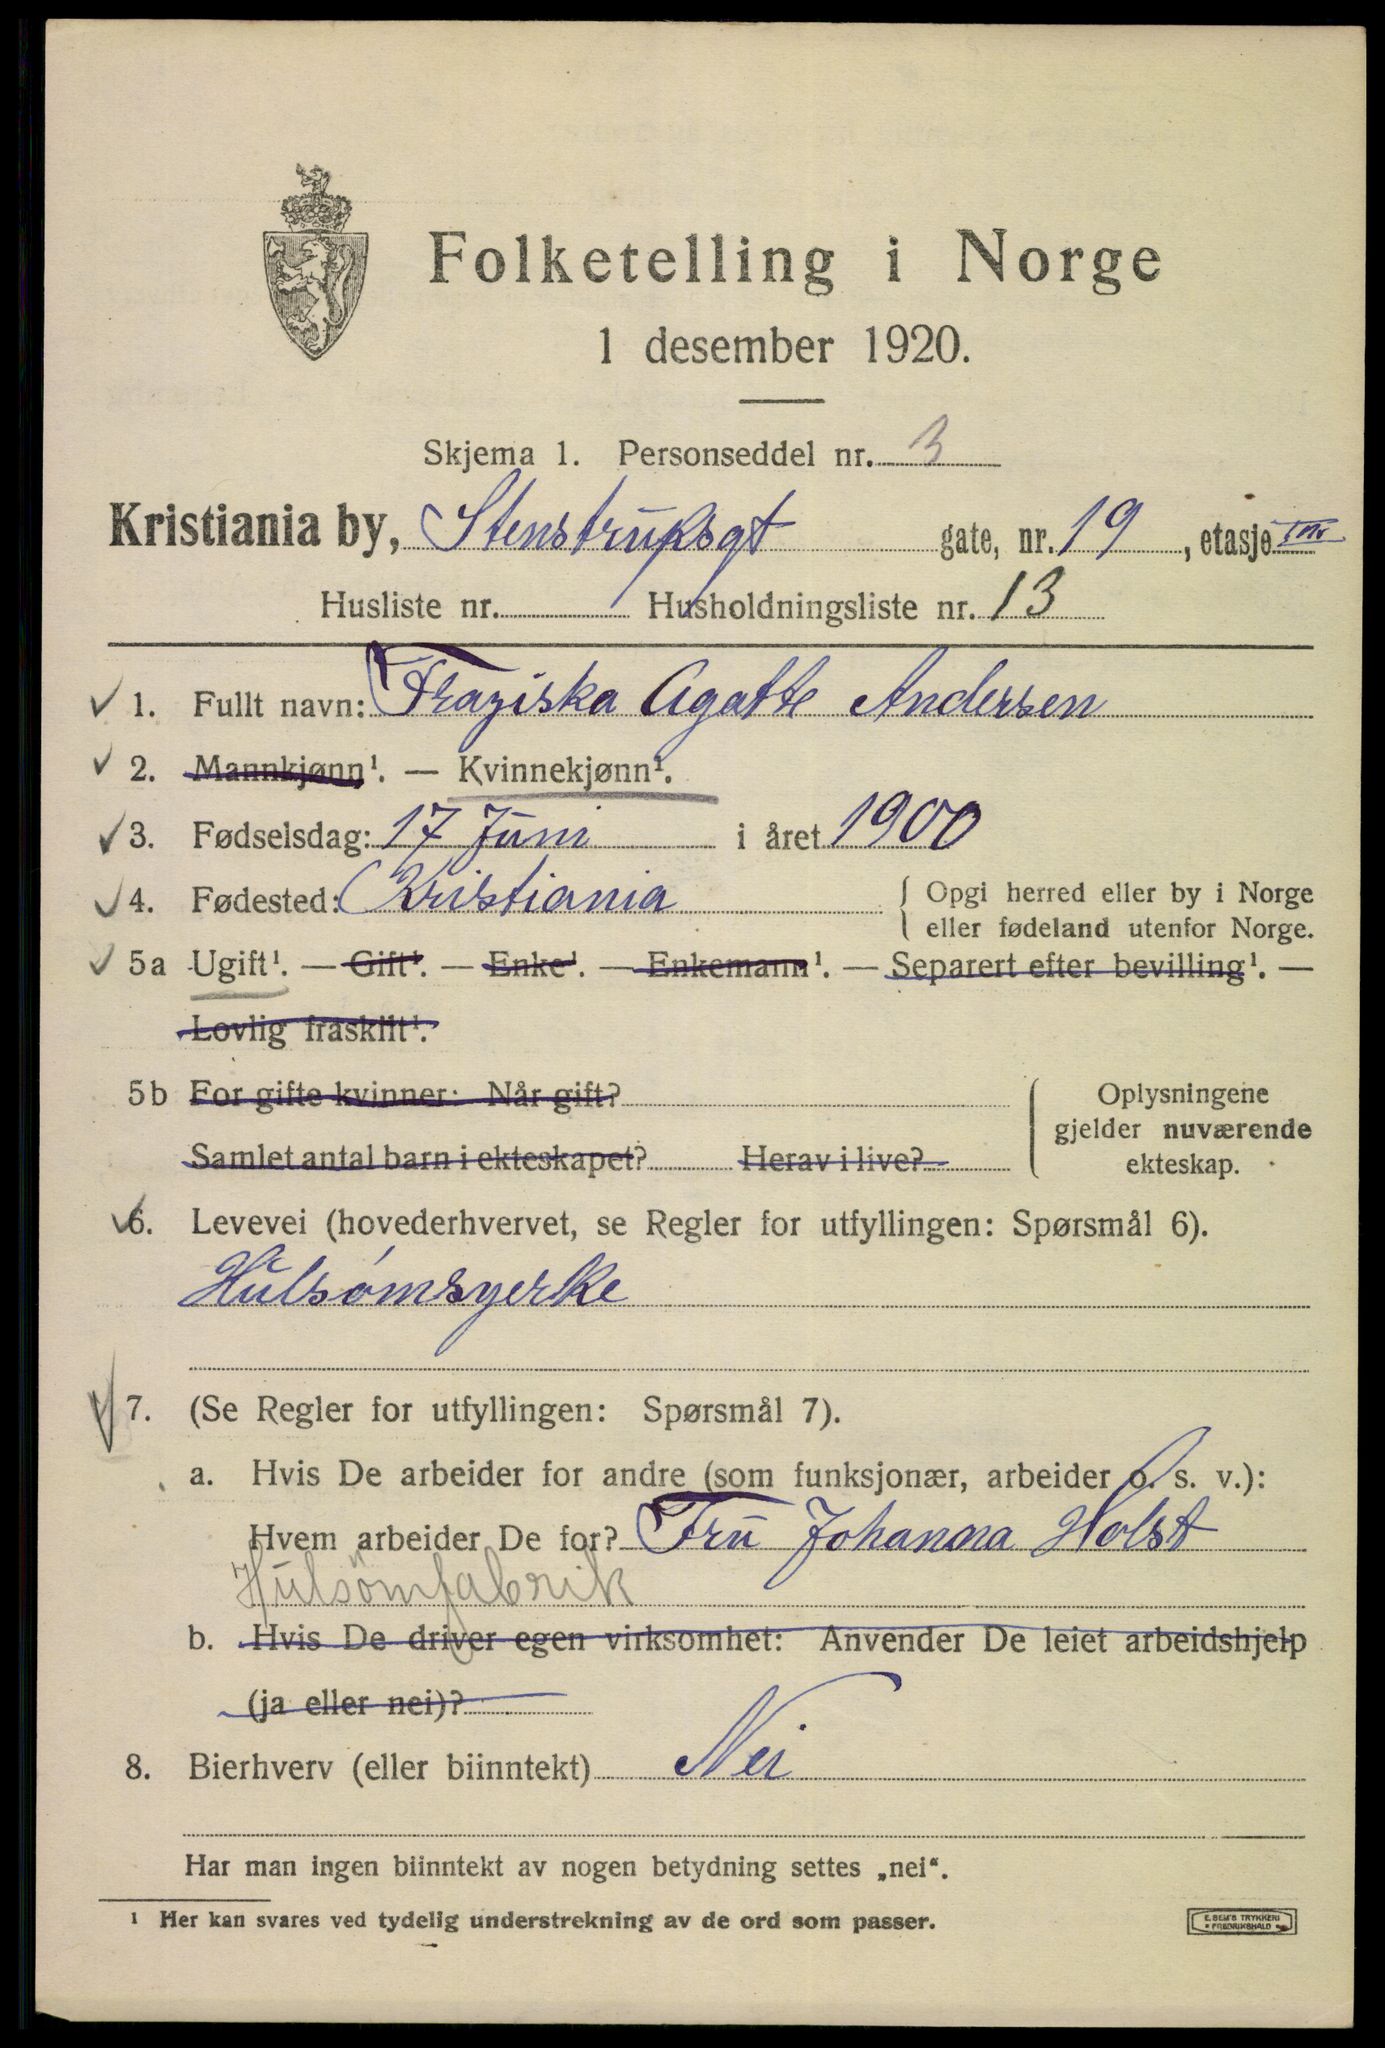 Folketelling i Norge
1 desember 1920.
Skjema 1. Personseddel nr. 3
Kristiania by, Stenstrupsgt gate, nr. 19, etasje
Husliste nr. Husholdningsliste nr. 13
1. Fullt navn: Fraziska Agatte Andersen
2. Mannkjønn¹. — Kvinnekjønn¹.
3. Fødselsdag: 17 Juni i året 1900
4. Fødested: Kristiania { Opgi herred eller by i Norge
eller fødeland utenfor Norge.
5a Ugift¹. — Gift¹. — Enke¹. — Enkemann¹. — Separert efter bevilling¹. —
Lovlig fraskilt¹.
5b For gifte kvinner: Når gift?
Samlet antal barn i ekteskapet? Herav i live?
Oplysningene
gjelder nuværende
ekteskap.
6. Levevei (hovederhvervet, se Regler for utfyllingen: Spørsmål 6).
Hulsømsyerke
7. (Se Regler for utfyllingen: Spørsmål 7).
a. Hvis De arbeider for andre (som funksjonær, arbeider o. s. v.):
Hvem arbeider De for? Fru Johanna Holst
Hulsømfabrik
b. Hvis De driver egen virksomhet: Anvender De leiet arbeidshjelp
(ja eller nei)?
8. Bierhverv (eller biinntekt) Nei
Har man ingen biinntekt av nogen betydning settes „nei“.
¹ Her kan svares ved tydelig understrekning av de ord som passer.
E. SEM'S TRYKKERI
• FREDRIKSHALD •